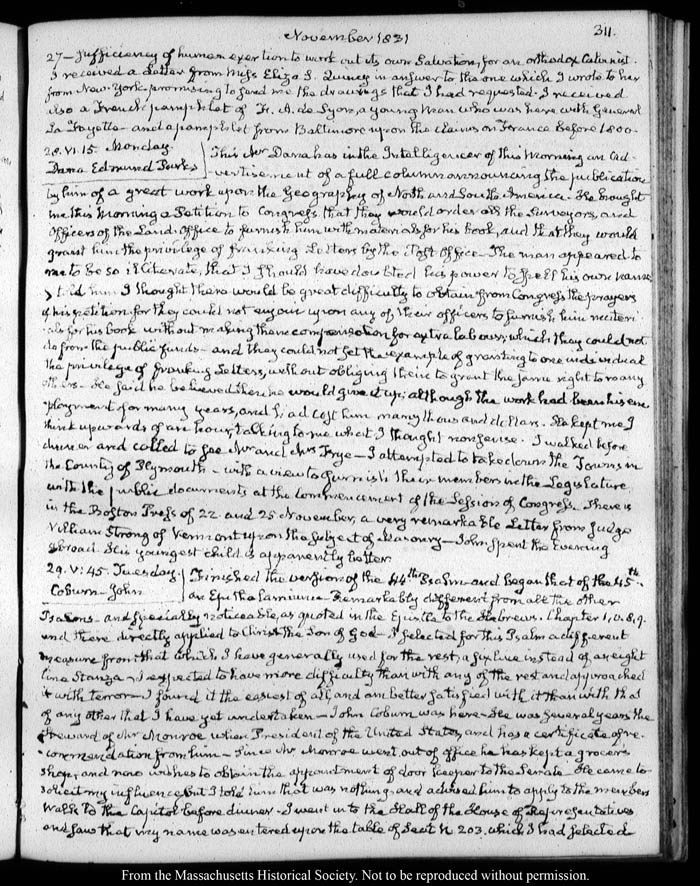 November 1831
311.
27 — sufficiency of human exertion to work out its own Salvation, for an orthodox Calvinist.
I received a Letter from Miss Eliza S. Quincy in answer to the one which I wrote to her
from New-York promising to send me the drawings that I had requested. I received
also a French pamphlet of Fr. A. de Syon, a young man who was here with General
La Fayette — and a pamphlet from Baltimore upon the claims on France before 1800 —
28. VI. 15. Monday.
Dana Edmund
This Mr Dana has in the Intelligencer of this Morning an ad-
vertisement of a full column announcing the publication
by him of a great work upon the Geography of North and South-America. He brought
me this Morning a Petition to Congress that they would order all the Surveyors, and
Officers of the Land-Office to furnish him with materials for his book, and that they would
grant him the privilege of franking Letters by the Post Office — The man appeared to
me to be so illiterate, that I should have doubted his power to spell his own name
I told him I thought there would be great difficulty to obtain from Congress the prayers
of his petition for they could not enjoin upon any of their officers to furnish him materi-
als for his book without making them compensation for extra labour, which they could not
do from the public funds — and they could not set the example of granting to one individual
the privilege of franking Letters, without obliging them to grant the same right to many
others — He said he believed then he would give it up; although the work had been his em-
ployment for many years, and had cost him many thousand dollars. He kept me I
think upwards of an hour, talking to me what I thought nonsense. I walked before
dinner and called to see Mr and Mrs Frye — I attempted to take down the Towns in
the County of Plymouth — with a view to furnish their members in the Legislature
with the public documents at the commencement of the Session of Congress. There is
in the Boston Press of 22 and 25 November, a very remarkable Letter from Judge
William Strong of Vermont upon the subject of Masonry — John spent the Evening
abroad. His youngest child is apparently better
29. V: 45. Tuesday.
Coburn — John
I finished the version of the 44th Psalm and began that of the 45th
an Epithalamium — Remarkably different from all the other
Psalms — and specially noticeable, as quoted in the Epistle to the Hebrews. Chapter 1, v. 8, 9.
and there directly applied to Christ the Son of God — I selected for this Psalm a different
measure from that which I have generally used for the rest; a six line instead of an eight
line Stanza — I expected to have more difficulty than with any of the rest and approached
it with terror — I found it the easiest of all, and am better satisfied with it than with that
of any other that I have yet undertaken — John Coburn was here — He was several years the
Steward of Mr Monroe when President of the United States, and has a certificate of re-
commendation from him — Since Mr Monroe went out of office he has kept a grocers
shop, and now wishes to obtain the appointment of door keeper to the Senate — He came to
solicit my influence, but I told him that was nothing, and advised him to apply to the members
Walk to the Capitol before dinner — I went into the Hall of the House of Representatives
and saw that my name was entered upon the table of Seat N. 203. which I had selected
From the Massachusetts Historical Society. Not to be reproduced without permission.